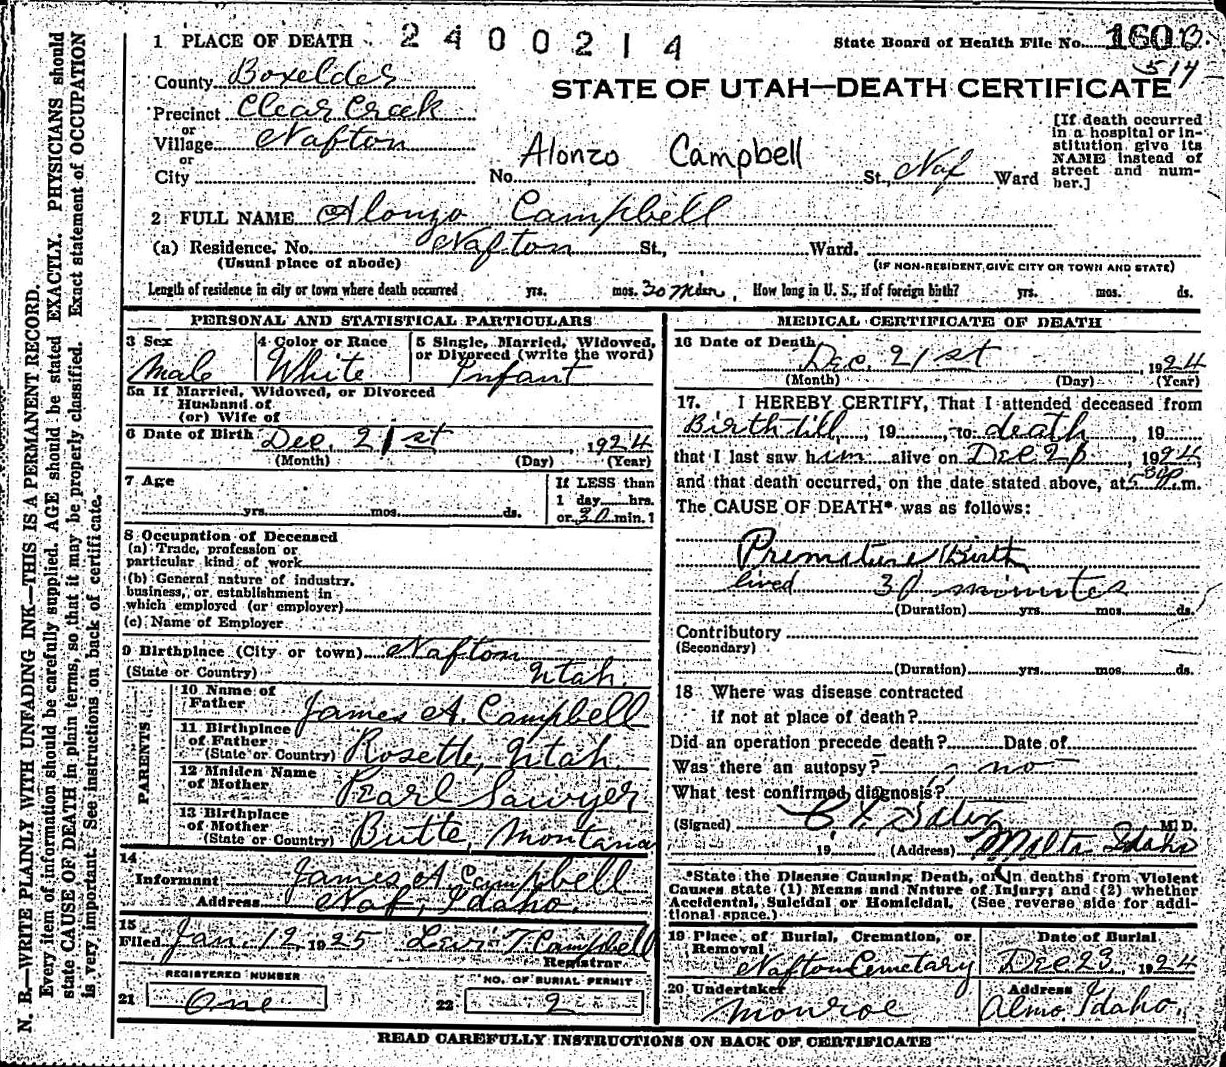 1 PLACE OF DEATH 2400214 State Board of Health File No. 160B
514
County Boxelder
STATE OF UTAH—DEATH CERTIFICATE
Precinct Clear Creek
or
Village Nafton
or
City
Alonzo Campbell
No. St., Naf Ward
[If death occurred in a hospital or in-
stitution give its
NAME instead of
street and num-
ber.]
2 FULL NAME Alonzo Campbell
(a) Residence. No. Nafton St., Ward.
(Usual place of abode) (IF NON-RESIDENT GIVE CITY OR TOWN AND STATE)
Length of residence in city or town where death occurred yrs. mos. 30 How long in U. S., if of foreign birth? yrs. mos. ds.
PERSONAL AND STATISTICAL PARTICULARS
3 Sex Male
4 Color or Race White
5 Single, Married, Widowed, or Divorced (write the word) Infant
5a If Married, Widowed, or Divorced
Husband of
(or) Wife of
6 Date of Birth Dec. 21st, 1924
(Month) (Day) (Year)
7 Age yrs. mos. ds.
If LESS than
1 day hrs.
or 30 min. ?
8 Occupation of Deceased
(a) Trade, profession or
particular kind of work
(b) General nature of industry,
business, or establishment in
which employed (or employer)
(c) Name of Employer
9 Birthplace (City or town) Nafton
(State or Country) Utah.
PARENTS
10 Name of Father James A. Campbell
11 Birthplace of Father (State or Country) Rosette, Utah.
12 Maiden Name of Mother Pearl Sawyer
13 Birthplace of Mother (State or Country) Butte, Montana
14
Informant James A Campbell
Address Naf, Idaho.
15
Filed Jan. 12, 1925 Levi T. Campbell
Registrar
REGISTERED NUMBER
21 One
NO. OF BURIAL PERMIT
22 2
MEDICAL CERTIFICATE OF DEATH
16 Date of Death Dec. 21st, 1924
(Month) (Day) (Year)
17. I HEREBY CERTIFY, That I attended deceased from
Birth till, 19, to death, 19
that I last saw him alive on Dec 21, 1924,
and that death occurred, on the date stated above, at 5 30 P. m.
The CAUSE OF DEATH* was as follows:
Premature Birth
lived 30 minutes
(Duration) yrs. mos. ds.
Contributory
(Secondary)
(Duration) yrs. mos. ds.
18 Where was disease contracted
if not at place of death?
Did an operation precede death? Date of
Was there an autopsy? no
What test confirmed diagnosis?
(Signed) M. D.
19 (Address) Malta Idaho
*State the Disease Causing Death, or in deaths from Violent
Causes state (1) Means and Nature of Injury; and (2) whether
Accidental, Suicidal or Homicidal. (See reverse side for addi-
tional space.)
19 Place of Burial, Cremation, or Removal Nafton Cemetary
Date of Burial Dec 23, 1924
20 Undertaker Monroe
Address Almo, Idaho.
READ CAREFULLY INSTRUCTIONS ON BACK OF CERTIFICATE
N. B.—WRITE PLAINLY WITH UNFADING INK—THIS IS A PERMANENT RECORD.
Every item of information should be carefully supplied. AGE should be stated EXACTLY. PHYSICIANS should
state CAUSE OF DEATH in plain terms, so that it may be properly classified. Exact statement of OCCUPATION
is very important. See instructions on back of certificate.